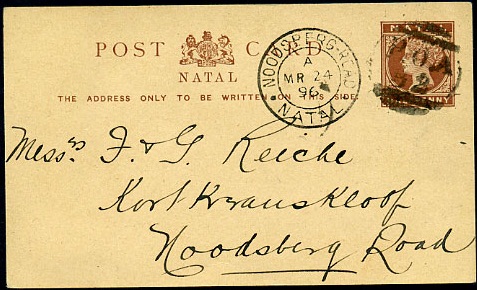 POST CARD
NATAL
THE ADDRESS ONLY TO BE WRITTEN ON THIS SIDE
NOODSBERG-ROAD
A
MR 24
96
NATAL
PENNY
Messrs F. & G. Reiche
Kort Kranskloof
Noodsberg Road